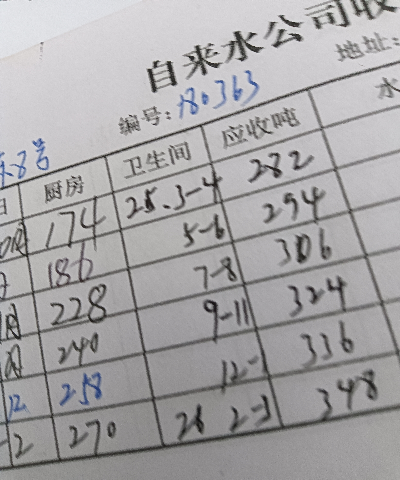 自来水公司收
地址:
编号: 180363
8号
厨房 卫生间 应收吨 水
174 25.3-4 282
186 5-6 294
月 228 7-8 306
240 9-11 324
12 258 12-1 336
2 270 26 2-3 348